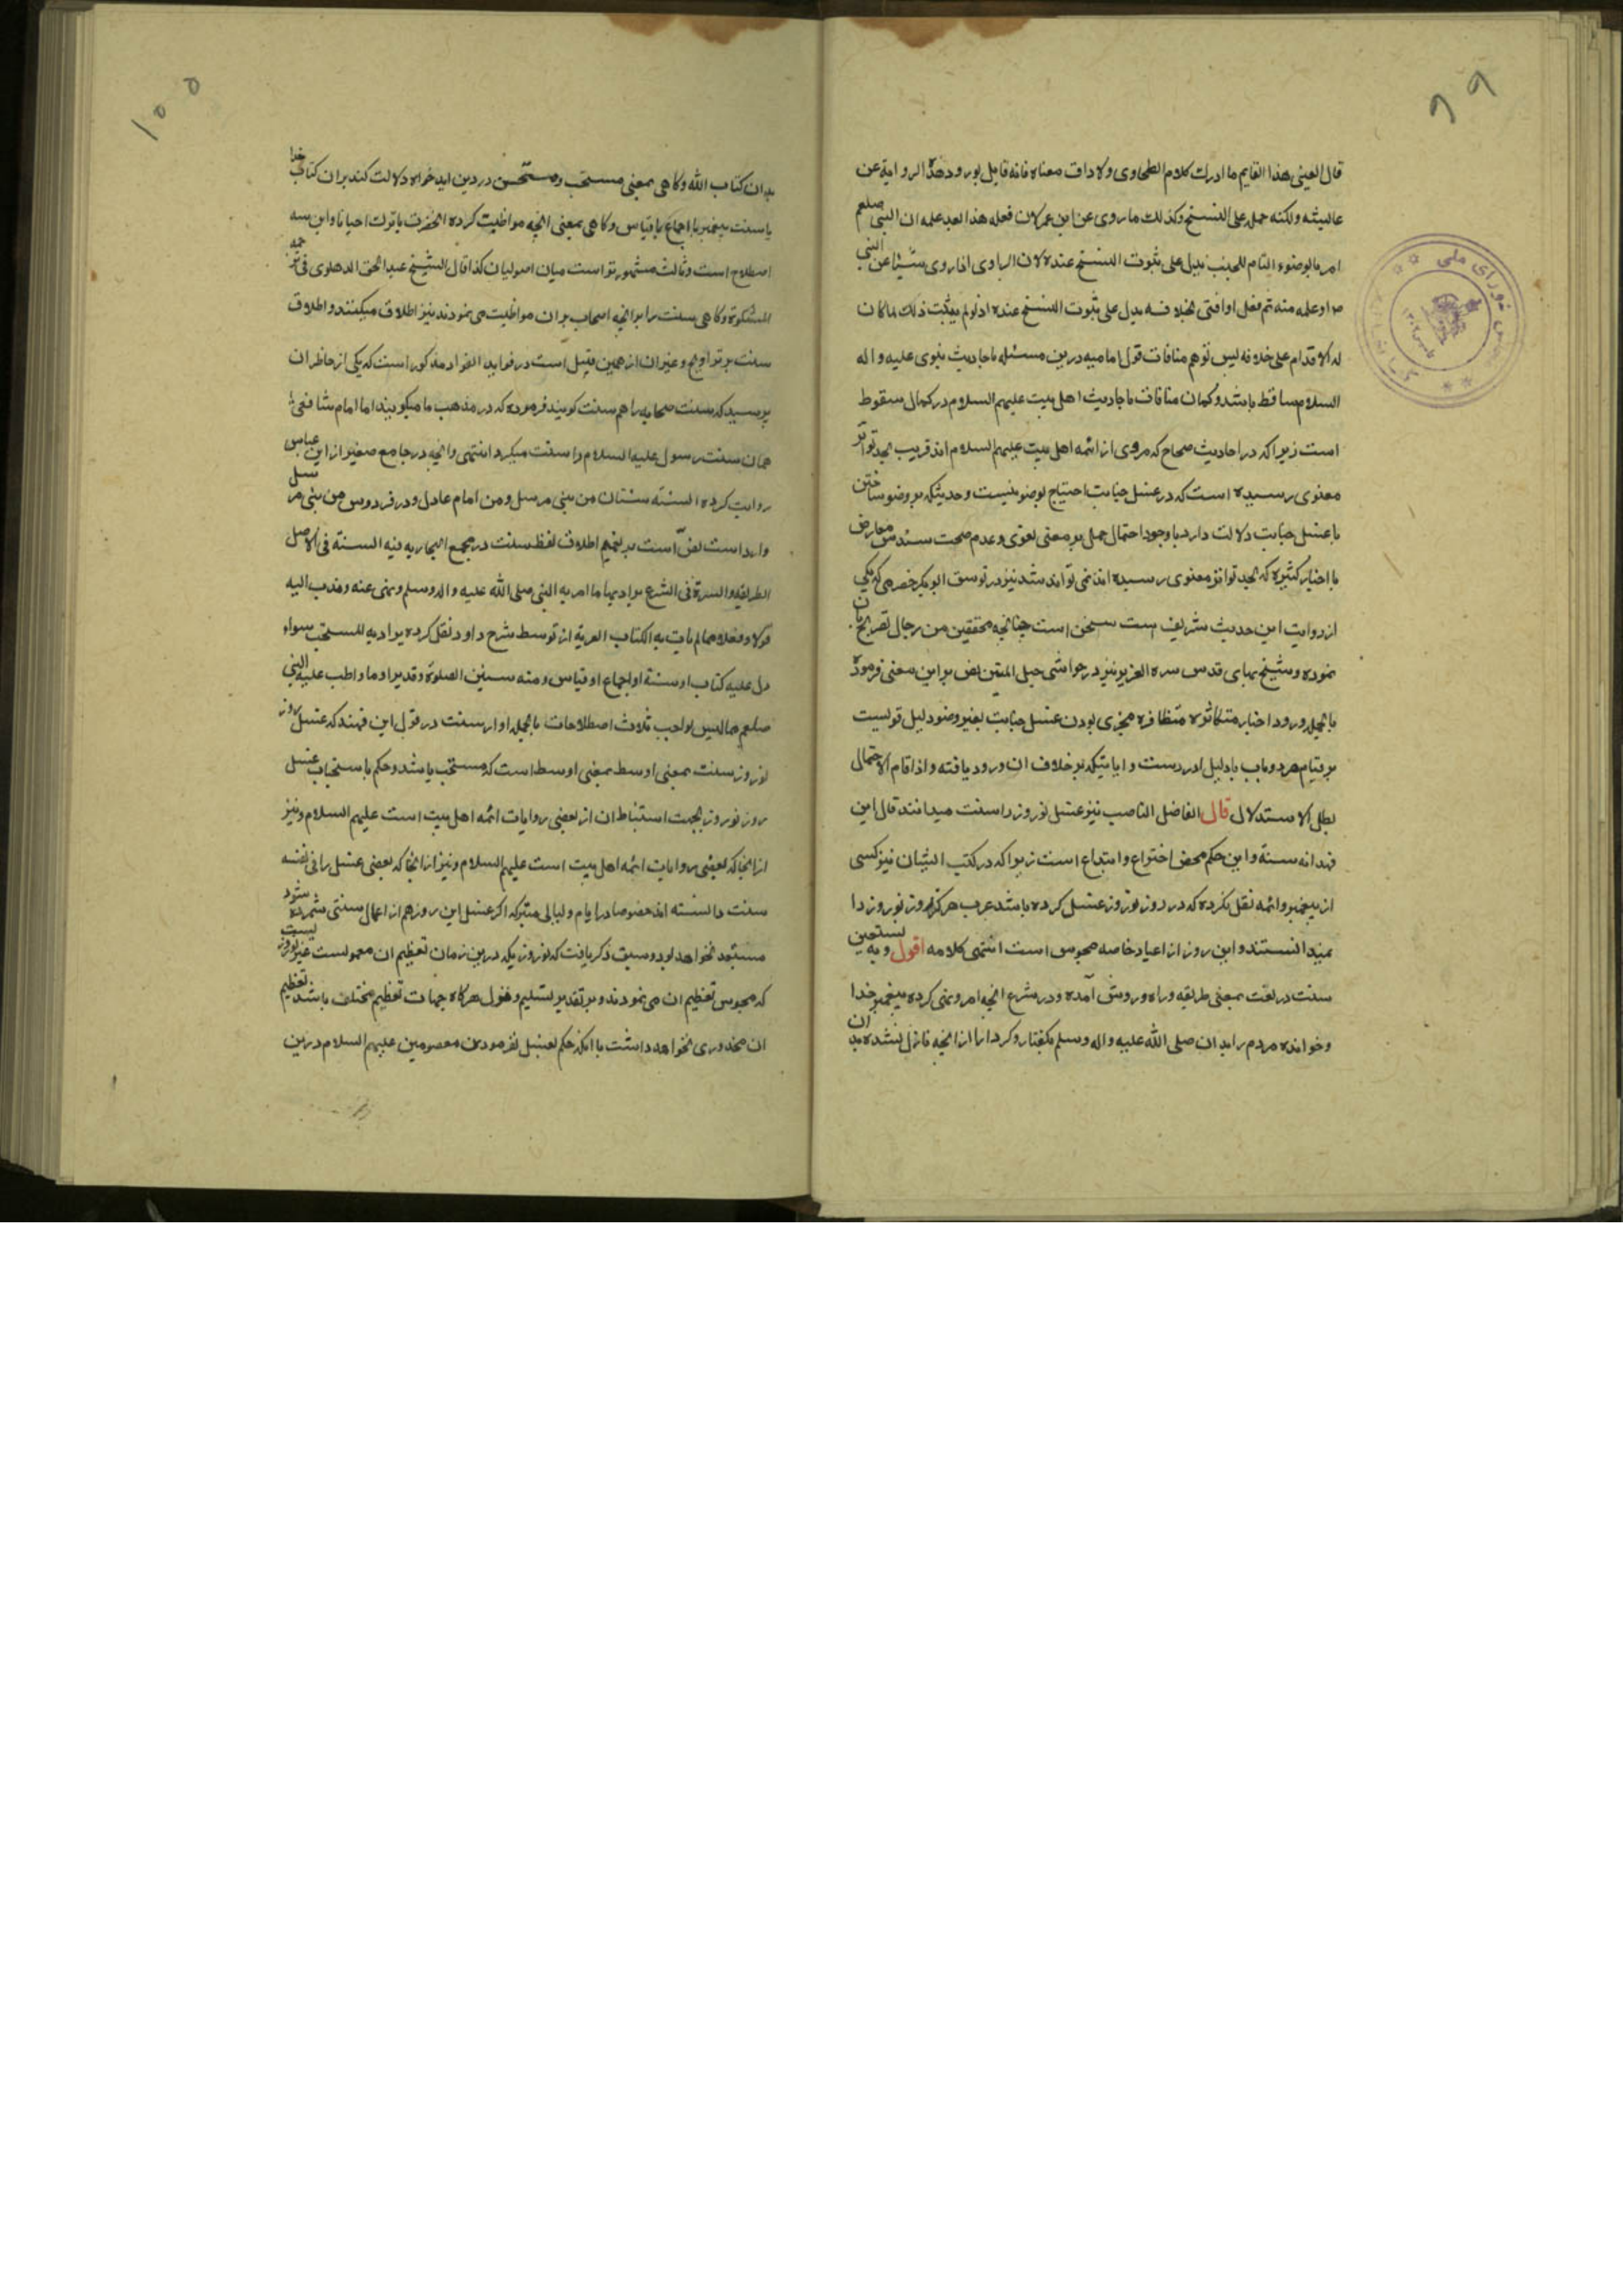 ۹۹
قال العینی هذا القایم ما ادرک کلام الطحاوی ولا ذاق معناه فانه قایل بورود هذه الروایة عن
عایشه ولکنه حمله علی النسخ وکذلک ما روی عن ابن عمر لان فعله هذا بعد علمه ان النبی صلعم
امر بالوضوء التام للجنب یدل علی ثبوت النسخ عنده لان الراوی اذا روی شیئا عن النبی
ص او علمه منه ثم فعل او افتی بخلافه یدل علی ثبوت النسخ عنده اذ لو لم یثبت ذلک لما کان
له الاقدام علی خلافه لیس توهم منافات قول امامیه درین مسئله باحادیث نبوی علیه واله
السلام ساقط باشد وکمان منافات باحادیث اهل بیت علیهم السلام در کمال سقوط
است زیرا که در احادیث صحاح که مروی از ائمه اهل بیت علیهم السلام اند قریب بحد تواتر
معنوی رسیده است که در غسل جنابت احتیاج بوضو نیست وحدیثیکه بر وضو ساختن
با غسل جنابت دلالت دارد با وجود احتمال حمل بر معنی لغوی وعدم صحت سندش معارض
با اخبار کثیره که بحد تواتر معنوی رسیده اند نمی تواند شد نیز در توسق ابو بکر خضرمی که یکی
از روات این حدیث شریف است سخن است چنانچه محققین من رجال تصریح بان
نموده وشیخ بهای قدس سره العزیز نیز در حواشی حبل المتین نص بر این معنی فرموده
بالجمله ورود اخبار متکاثره متظافره مجزی بودن غسل جنابت بغیر وضو دلیل قویست
بر قیام هر دو باب با دلیل ادر دست و ایا بتیکه بر خلاف ان ورود یافته واذا قام الاحتمال
بطل الاستدلال قال الفاضل الناصب نیز غسل نوروز را سنت میدانند قال ابن
فهد انه سنة واین حکم محض اختراع وابتداع است زیرا که در کتب ایشان نیز کسی
از پیغمبر وائمه نقل نکرده که در روز نوروز غسل کرده باشد عرب هرکز روز نوروز را
نمیدانستند واین روز از اعیاد خاصه مجوس است انتهی کلامه اقول وبه نستعین
سنت در لغت بمعنی طریقه وراه وروش آمده ودر شرع انچه امر ونهی کرده پیغمبر خدا
وخوانده مردم را بدان صلی الله علیه واله وسلم بکفتار وکردار از انچه نازل نشده بدان
۱۰۰
بدان کتاب الله وکاهی بمعنی مستحب ومستحسن در دین اید خواه دلالت کند بران کتاب خدا
یا سنت پیغمبر یا اجماع یا قیاس وکاهی بمعنی انچه مواظبت کرده انحضرت با ترک احیانا واین سه
اصطلاح است وثالث مشهورتر است میان اصولیان کذا قال الشیخ عبد الحق الدهلوی فی ترجمه
المشکوة وکاهی سنت را بر انچه اصحاب بران مواظبت می نمودند نیز اطلاق میکنند واطلاق
سنت بر تراویح وغیر ان از همین قبیل است در فواید الفواد مذکور است که یکی از حاظران
پرسید که سنت صحابه را هم سنت کویند فرموده که در مذهب ما میکویند اما امام شافعی
همان سنت رسول علیه السلام را سنت میکیرد انتهی وانچه در جامع صغیر از ابن عباس
روایت کرده السنة سنتان من نبی مرسل ومن امام عادل ودر فردوس من نبی مرسل
وارد است نص است بر تعمیم اطلاق لفظ سنت در مجمع البحار به فیه السنة فی الاصل
الطریقه والسیرة فی الشرع یراد بها ما امر به النبی صلی الله علیه واله وسلم ونهی عنه وندب الیه
قولا وفعلا مما لم یات به الکتاب العزیز از توسط شرح داود نقل کرده یراد به المستحب سواء
دل علیه کتاب او سنة او اجماع او قیاس ومنه سنن الصلوة وقد یراد ما واظب علیه النبی
صلعم مما لیس بواجب ثلاث اصطلاحات بالجمله اوار سنت در قول ابن فهد که غسل روز
نوروز سنت بمعنی اوسط بمعنی اوسط است که مستحب باشد وحکم باستحباب غسل
روز نوروز بجهت استنباط ان از بعضی روایات ائمه اهل بیت است علیهم السلام ونیز
از انجا که بعضی روایات ائمه اهل بیت است علیهم السلام ونیز از انجا که بعضی غسل را فی نفسه
سنت دانسته اند خصوصا در ایام ولیالی متبرکه اکر غسل این روز هم از اعمال سنتی شمرده شود
مستبعد نخواهد بود وسبق ذکر یافت که نوروزیکه درین زمان تعظیم ان معمولست غیر نوروز نیست
که مجوس تعظیم ان می نمودند وبر تقدیر تسلیم وقول هرکاه جهات تعظیم مختلف باشد تعظیم
ان محذوری نخواهد داشت با انکه حکم بغسل فرمودن معصومین علیهم السلام درین